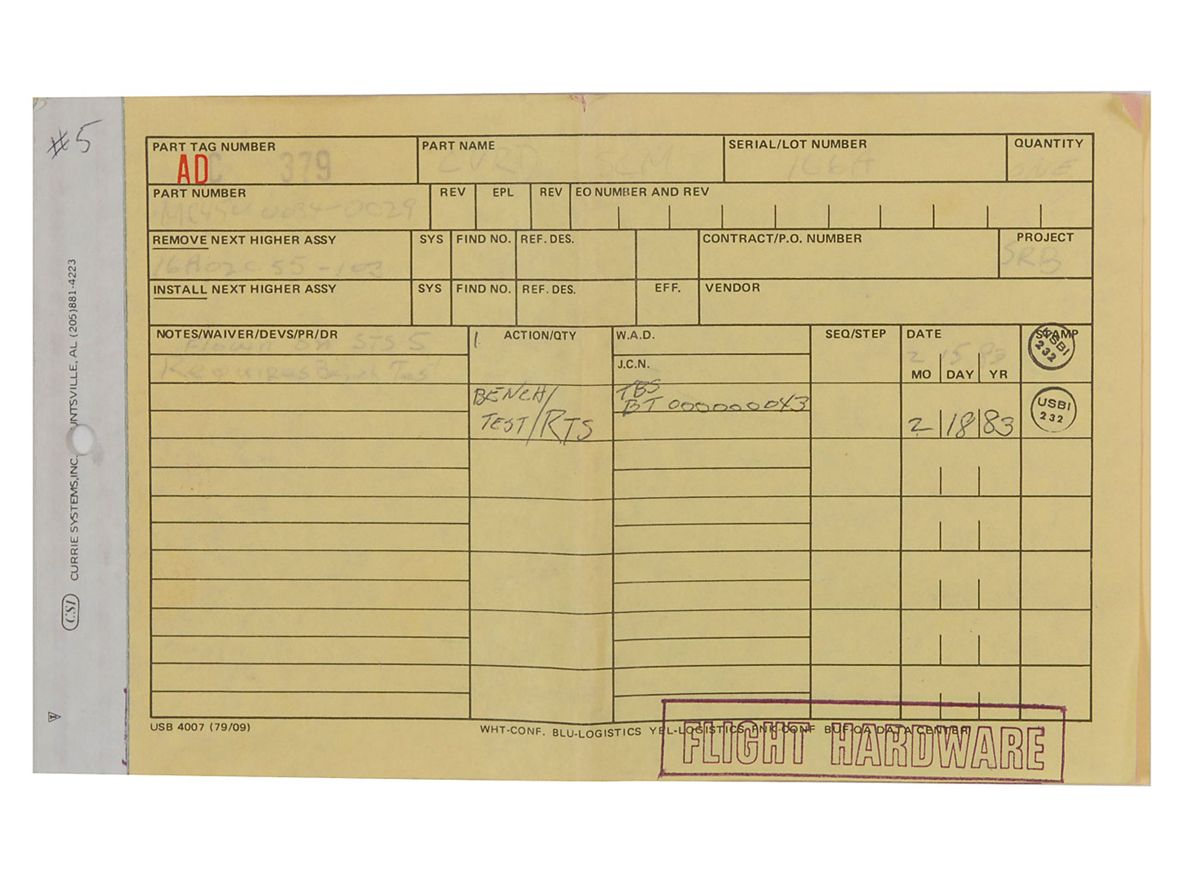 #5
PART TAG NUMBER PART NAME SERIAL/LOT NUMBER QUANTITY
ADC 379 SCM 166A ONE
PART NUMBER REV EPL REV EO NUMBER AND REV
-0029
REMOVE NEXT HIGHER ASSY SYS FIND NO. REF. DES. CONTRACT/P.O. NUMBER PROJECT
16A02055-103 SRB
INSTALL NEXT HIGHER ASSY SYS FIND NO. REF. DES. EFF. VENDOR
NOTES/WAIVER/DEVS/PR/DR ACTION/QTY W.A.D. SEQ/STEP DATE STAMP
Flown on STS 5 2 15 83 USBI 232
Requires Bench Test J.C.N. MO DAY YR
BENCH/ TBS USBI
TEST/RTS BT 000000043 2 18 83 232
USB 4007 (79/09) WHT-CONF. BLU-LOGISTICS YEL-LOGISTICS PNK-CONF BUF-QA DATA CENTER
FLIGHT HARDWARE
CSI CURRIE SYSTEMS, INC. HUNTSVILLE, AL (205)881-4223